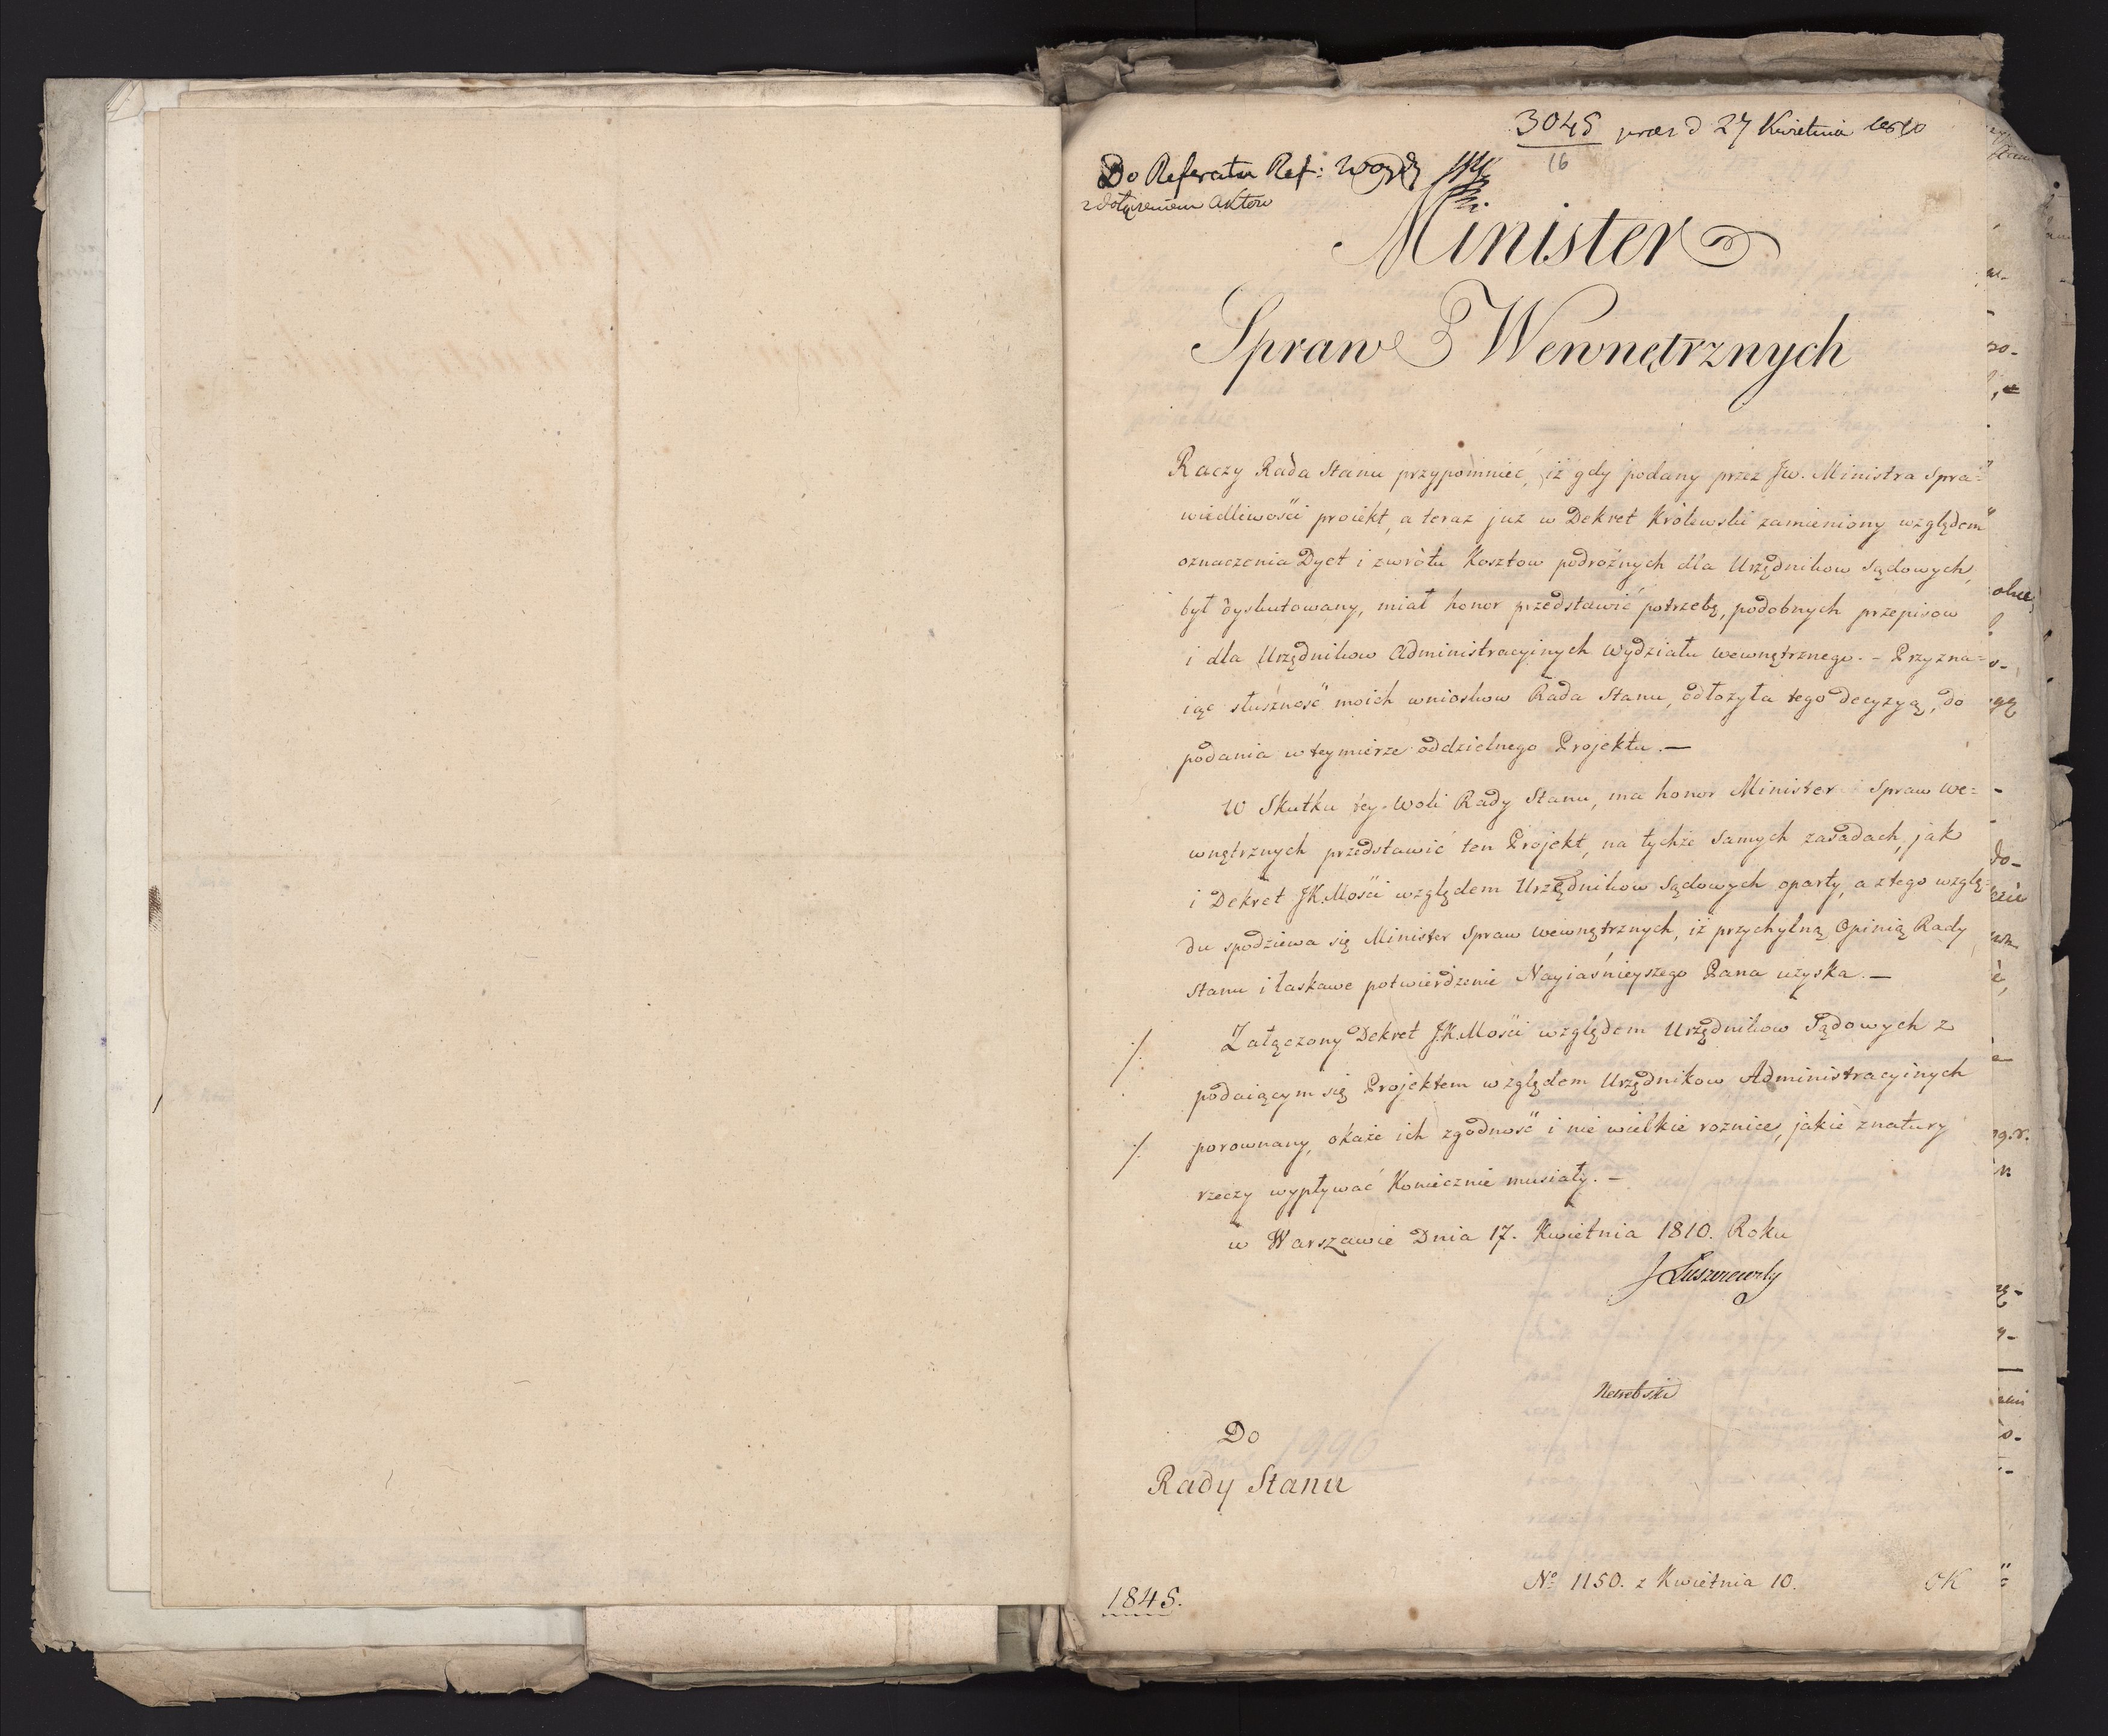 3045 praes d 27 Kwietnia 1810
16
Do Referatu Ref:
z dołączeniem aktow
Minister
Spraw Wewnętrznych
Raczy Rada Stanu przypomnieć, iż gdy podany przez Jw. Ministra Spra=
wiedliwości proiekt, a teraz już w Dekret Królewski zamieniony względem
oznaczenia Dyet i zwrótu Kosztow podróżnych dla Urzędnikow Sądowych,
był dyskutowany, miał honor przedstawić potrzebę, podobnych przepisow
i dla Urzędnikow Administracyinych Wydziału wewnętrznego. - Przyzna=
iąc słuszność moich wnioskow Rada Stanu, odłożyła tego decyzyą, do
podania w tey mierze oddzielnego Projektu. —
W Skutku tey Woli Rady Stanu, ma honor Minister Spraw We=
wnętrznych przedstawić ten Projekt, na tychże samych zasadach, jak
i Dekret JK.Mości względem Urzędnikow Sądowych oparty, a z tego wzglę=
du spodziewa się Minister Spraw Wewnętrznych, iż przychylną Opinią Rady
Stanu i łaskawe potwierdzenie Nayiaśnieyszego Pana uzyska. —
/. Załączony Dekret J.K.Mości względem Urzędnikow Sądowych z
podaiącym się Projektem względem Urzędnikow Administracyinych
/. porownany, okaże ich zgodność i nie wielkie roznice, jakie z natury
rzeczy wypływać Koniecznie musiały. —
w Warszawie Dnia 17. Kwietnia 1810. Roku
J Łuszczewsky
Do
1990
Rady Stanu
No 1150. z Kwietnia 10.
OK
1845.